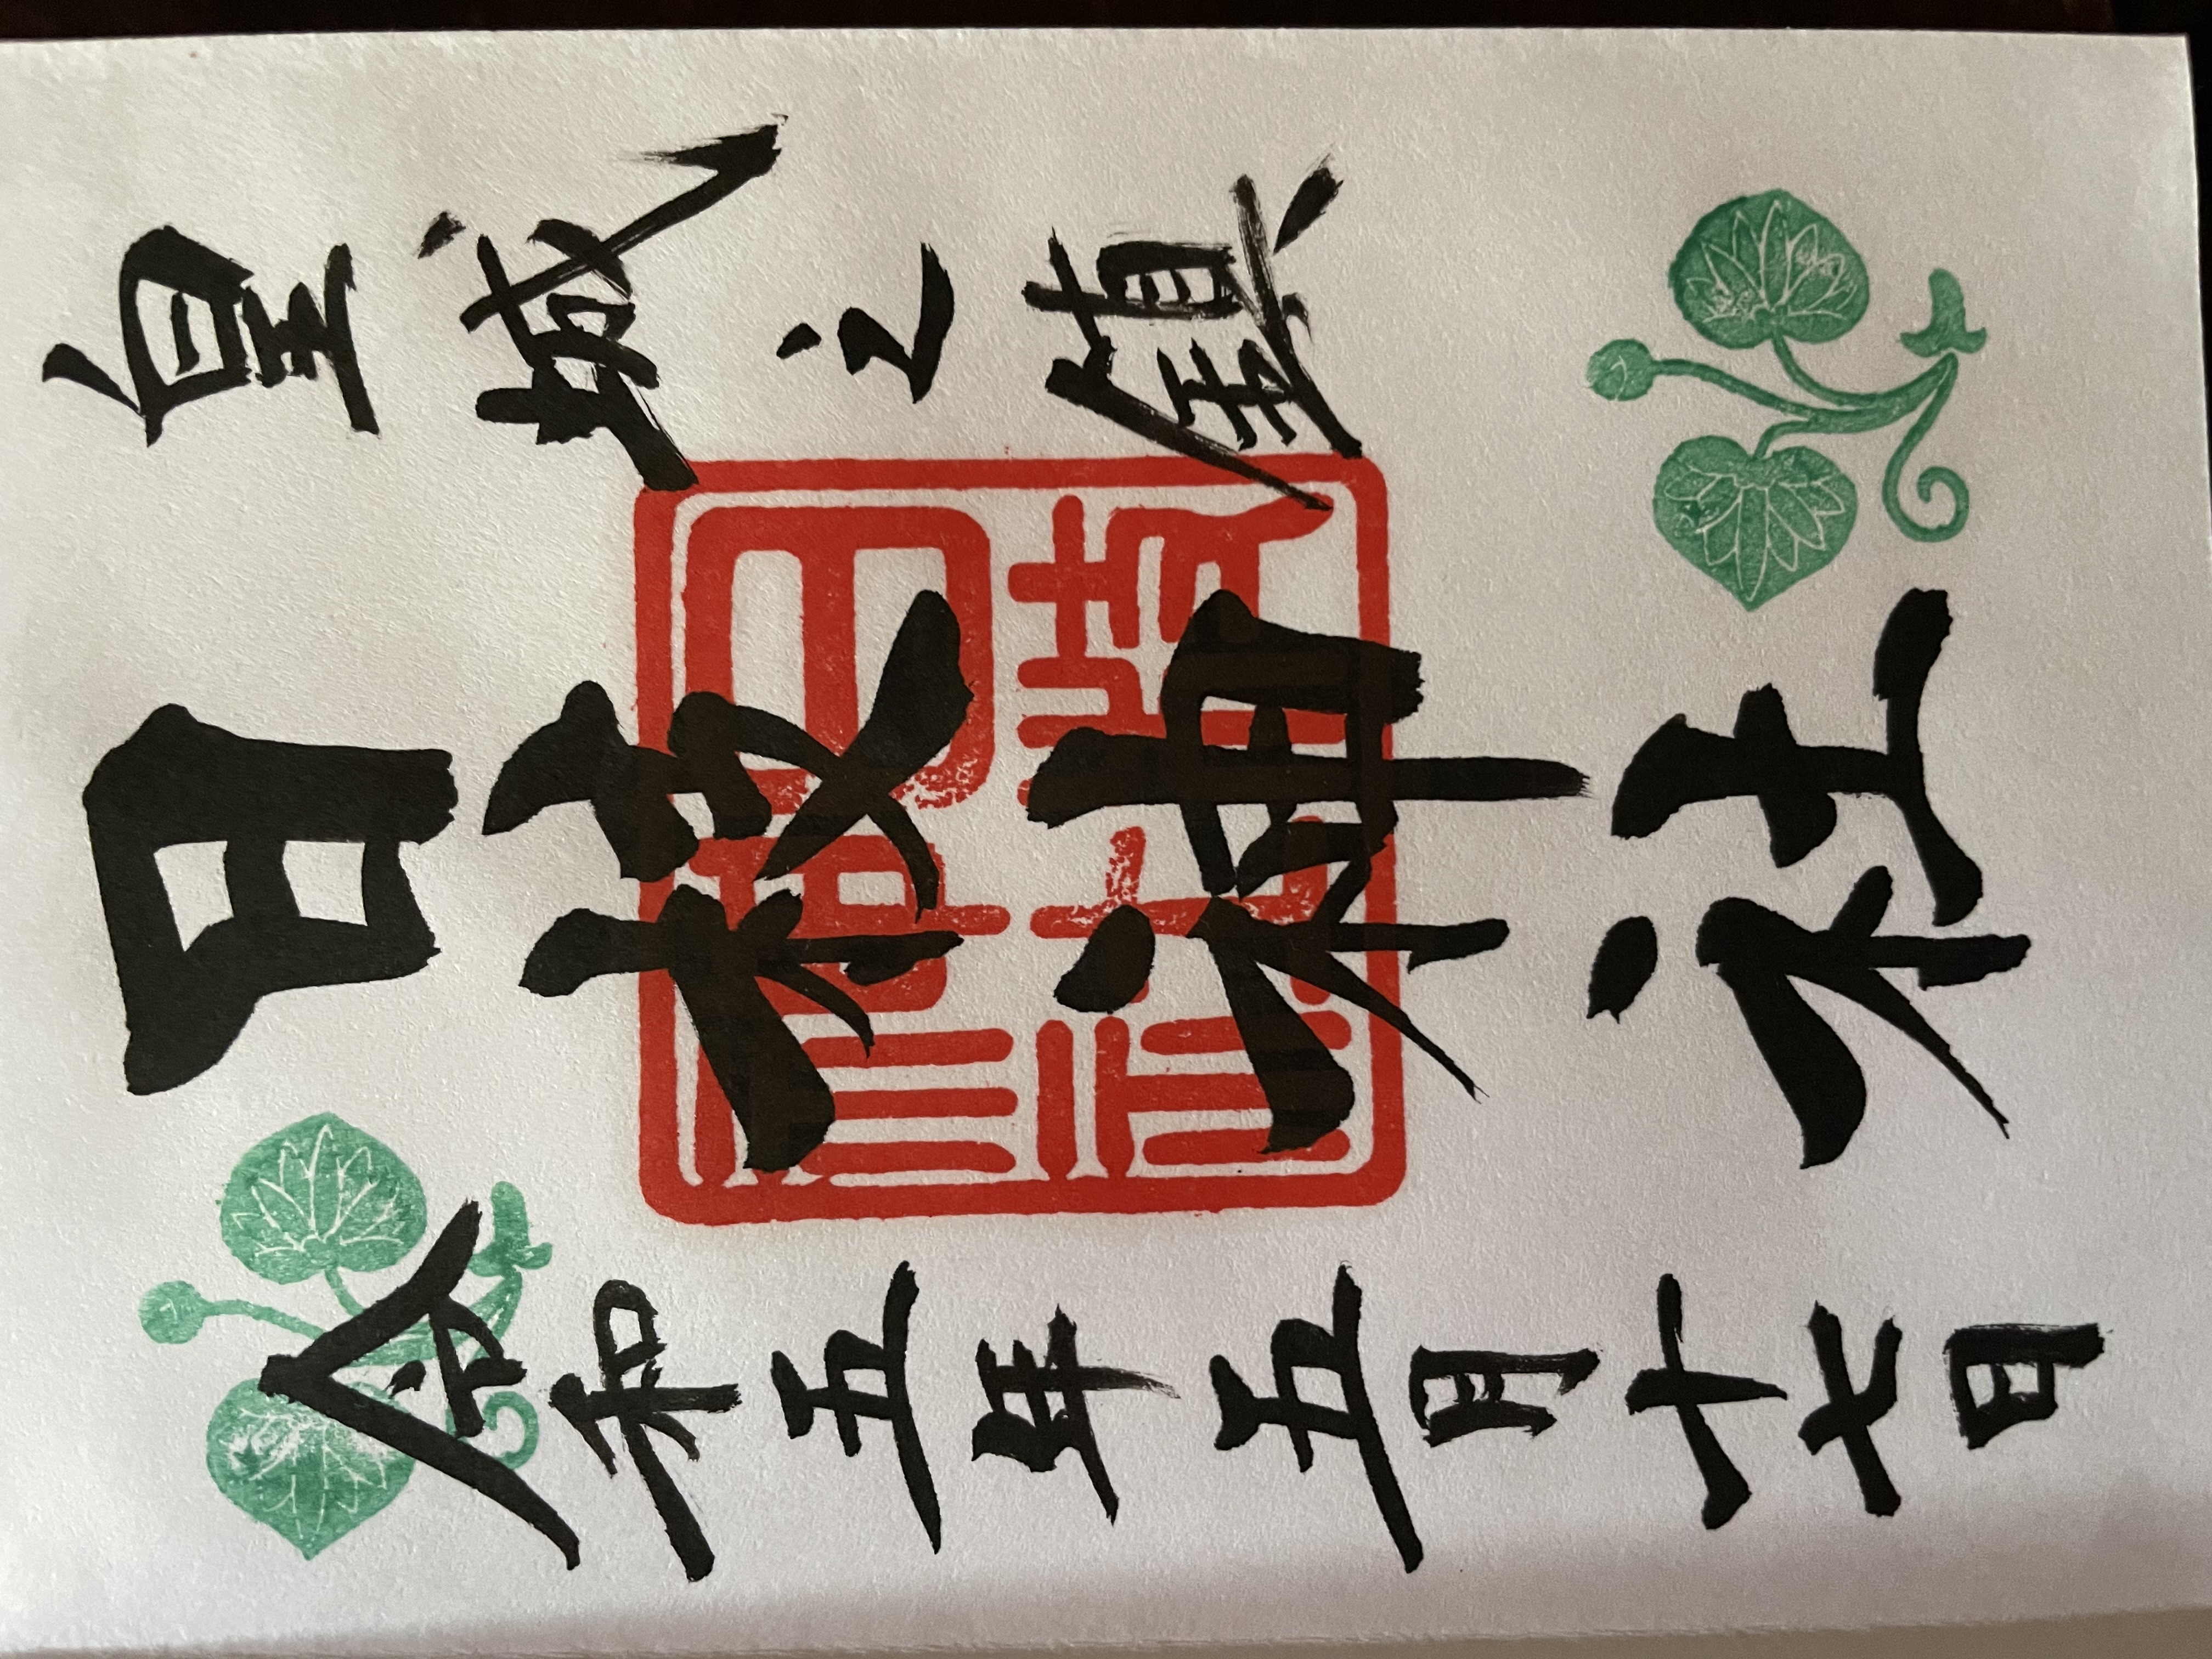 皇城之鎮
日枝神社
日枝神社
令和五年五月十七日